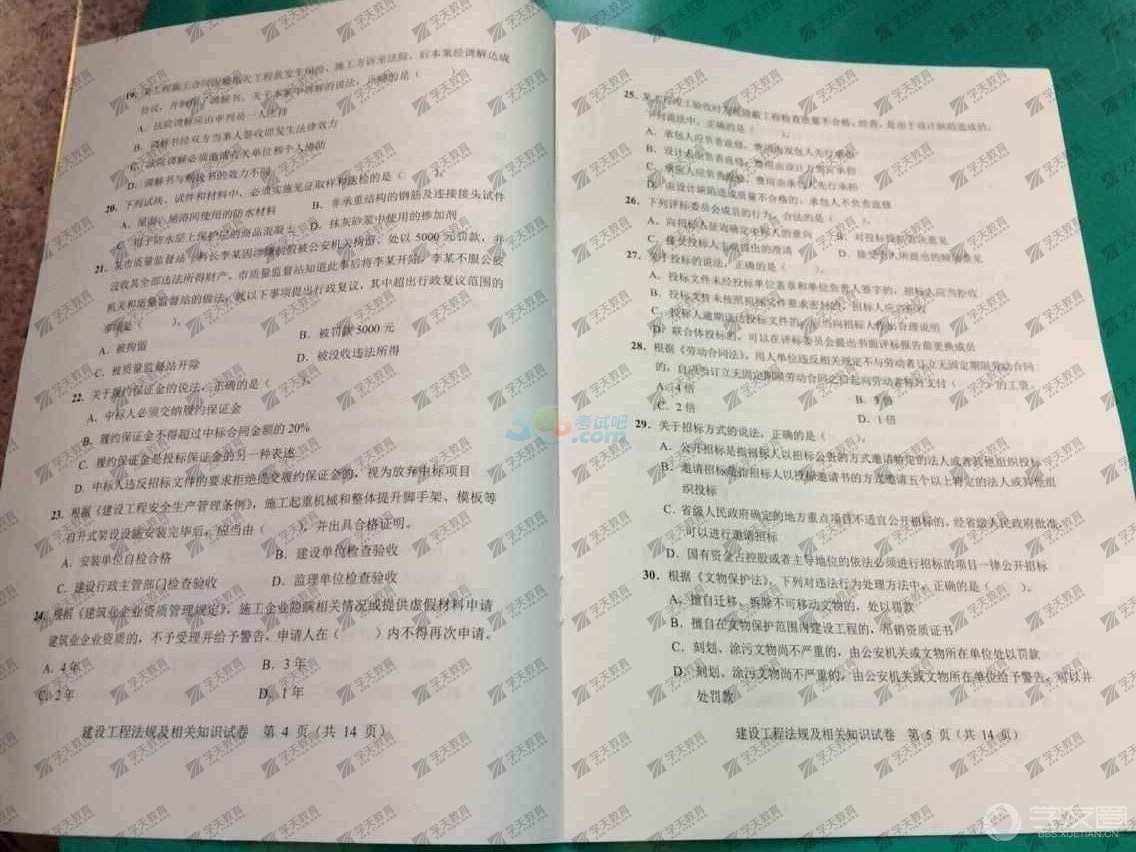 19. 某工程施工合同
协议，并制作了调解书。关于本案中调解的说法，正确的是（
A. 法院调解应由审判员一人主持
B. 调解书经双方当事人签收即发生法律效力
C. 法院调解必须邀请有关单位和个人协助
D. 调解书与判决书的效力不同
20. 下列试块、试件和材料中，必须实施见证取样和送检的是（ ）。
A. 屋面、厕浴间使用的防水材料 B. 非承重结构的钢筋及连接接头试件
C. 用于防水层上保护层的商品混凝土 D. 抹灰砂浆中使用的掺加剂
21. 某市质量监督站 被公安机关拘留，处以 5000 元罚款，并
没收其全部违法所得财产、市质量监督站知道此事后将李某开除，李某不服公安
机关和质量监督站的做法，就以下事项提出行政复议，其中超出行政复议范围的
事项是（ ）。
A. 被拘留 B. 被罚款 5000 元
C. 被质量监督站开除 D. 被没收违法所得
22. 关于履约保证金的说法，正确的是（ ）。
A. 中标人必须交纳履约保证金
B. 履约保证金不得超过中标合同金额的 20%
C. 履约保证金是投标保证金的另一种表述
D. 中标人违反招标文件的要求拒绝提交履约保证金的，视为放弃中标项目
23. 根据《建设工程安全生产管理条例》，施工起重机械和整体提升脚手架、模板等
自升式架设设施安装完毕后，应当由（ ），并出具合格证明。
A. 安装单位自检合格 B. 建设单位检查验收
C. 建设行政主管部门检查验收 D. 监理单位检查验收
24. 根据《建筑业企业资质管理规定》，施工企业隐瞒相关情况或提供虚假材料申请
建筑业企业资质的，不予受理并给予警告，申请人在（ ）内不得再次申请。
A. 4 年 B. 3 年
C. 2 年 D. 1 年
建设工程法规及相关知识试卷 第 4 页（共 14 页）
25. 某工程竣工验收时发现隐蔽工程检查质量不合格，经查，是由于设计缺陷造成的。
下列说法中，正确的是（ ）。
A. 承包人应负责返修，费用由发包人先行承担
B. 设计人应负责返修，费用由设计人先行承担
C. 承包人应负责返修，费用由承包人先行承担
D. 由设计缺陷造成质量不合格的，承包人不负责返修
26. 下列评标委员会成员的行为，合法的是（ ）。
A. 向招标人征询确定中标人的意向 B. 对投标投反对意见
C. 接受投标人主动提出的澄清 D. 接受 人所提出的 意见
27. 关于投标的说法，正确的是（ ）。
A. 投标文件未经投标单位盖章和单位负责人签字的，招标人应当拒收
B. 投标文件未按照招标文件要求密封的，招标人应当拒收
C. 投标人逾期送达投标文件的，应当向招标人作出合理说明
D. 联合体投标的，可以在评标委员会提出书面评标报告前更换成员
28. 根据《劳动合同法》，用人单位违反相关规定不与劳动者订立无固定期限劳动合同
的，自应当订立无固定期限劳动合同之日起向劳动者每月支付（ ）的工资。
A. 4 倍 B. 3 倍
C. 2 倍 D. 1 倍
29. 关于招标方式的说法，正确的是（ ）。
A. 公开招标是指招标人以招标公告的方式邀请特定的法人或者其他组织投标
B. 邀请招标是指招标人以投标邀请书的方式邀请五个以上特定的法人或其他组
织投标
C. 省级人民政府确定的地方重点项目不适宜公开招标的，经省级人民政府批准，
可以进行邀请招标
D. 国有资金占控股或者主导地位的依法必须进行招标的项目一律公开招标
30. 根据《文物保护法》，下列对违法行为处理方法中，正确的是（ ）。
A. 擅自迁移、拆除不可移动文物的，处以罚款
B. 擅自在文物保护范围内建设工程的，吊销资质证书
C. 刻划、涂污文物尚不严重的，由公安机关或文物所在单位处以罚款
D. 刻划、涂污文物尚不严重的，由公安机关或文物所在单位给予警告，可以并
处罚款
建设工程法规及相关知识试卷 第 5 页（共 14 页）
学天教育
考试吧
.com
学友圈
BBS.XUETIAN.CN